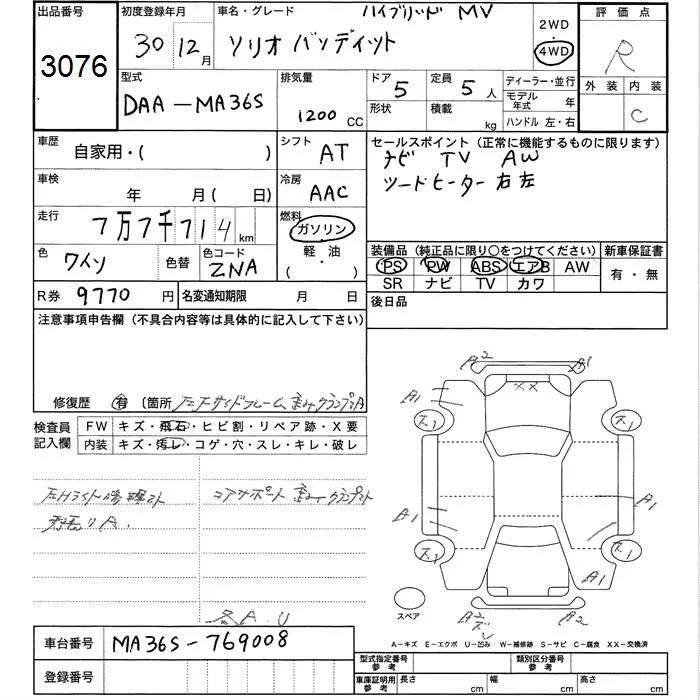 出品番号 初度登録年月 車名・グレード ハイブリッド MV 2WD 評価点
3076 30 12月 ソリオ バンディット 4WD R
型式 排気量 ドア 定員 ディーラー・並行 外装 内装
DAA-MA36S 1200 CC 5 5人 モデル年式 年 C
形状 積載 kg ハンドル 左・右
車歴 自家用・( ) シフト AT セールスポイント(正常に機能するものに限ります)
ナビ TV AW
車検 年 月( 日) 冷房 AAC シードヒーター 右左
走行 7万7千714km 燃料 ガソリン
軽・油
( )
色 ワイン 色替 色コード ZNA 装備品(純正品に限り○をつけてください) 新車保証書
PS PW ABS エアB AW 有・無
SR ナビ TV カワ
R券 9770円 名変通知期限 月 日 後日品
注意事項申告欄(不具合内容等は具体的に記入して下さい)
修復歴 有 〔箇所
検査員記入欄 FW キズ・飛石・ヒビ割・リペア跡・X要
内装 キズ・汚レ・コゲ・穴・スレ・キレ・破レ
コアサポート
A2 A1
XX
A1
A1
A1
A1
A2
スペア
A-キズ E-エクボ U-凹み W-補修跡 S-サビ C-腐食 XX-交換済
車台番号 MA36S-769008
登録番号
型式指定番号 参考 類別区分番号 参考
車庫証明用 参考 長さ cm 幅 cm 高さ cm